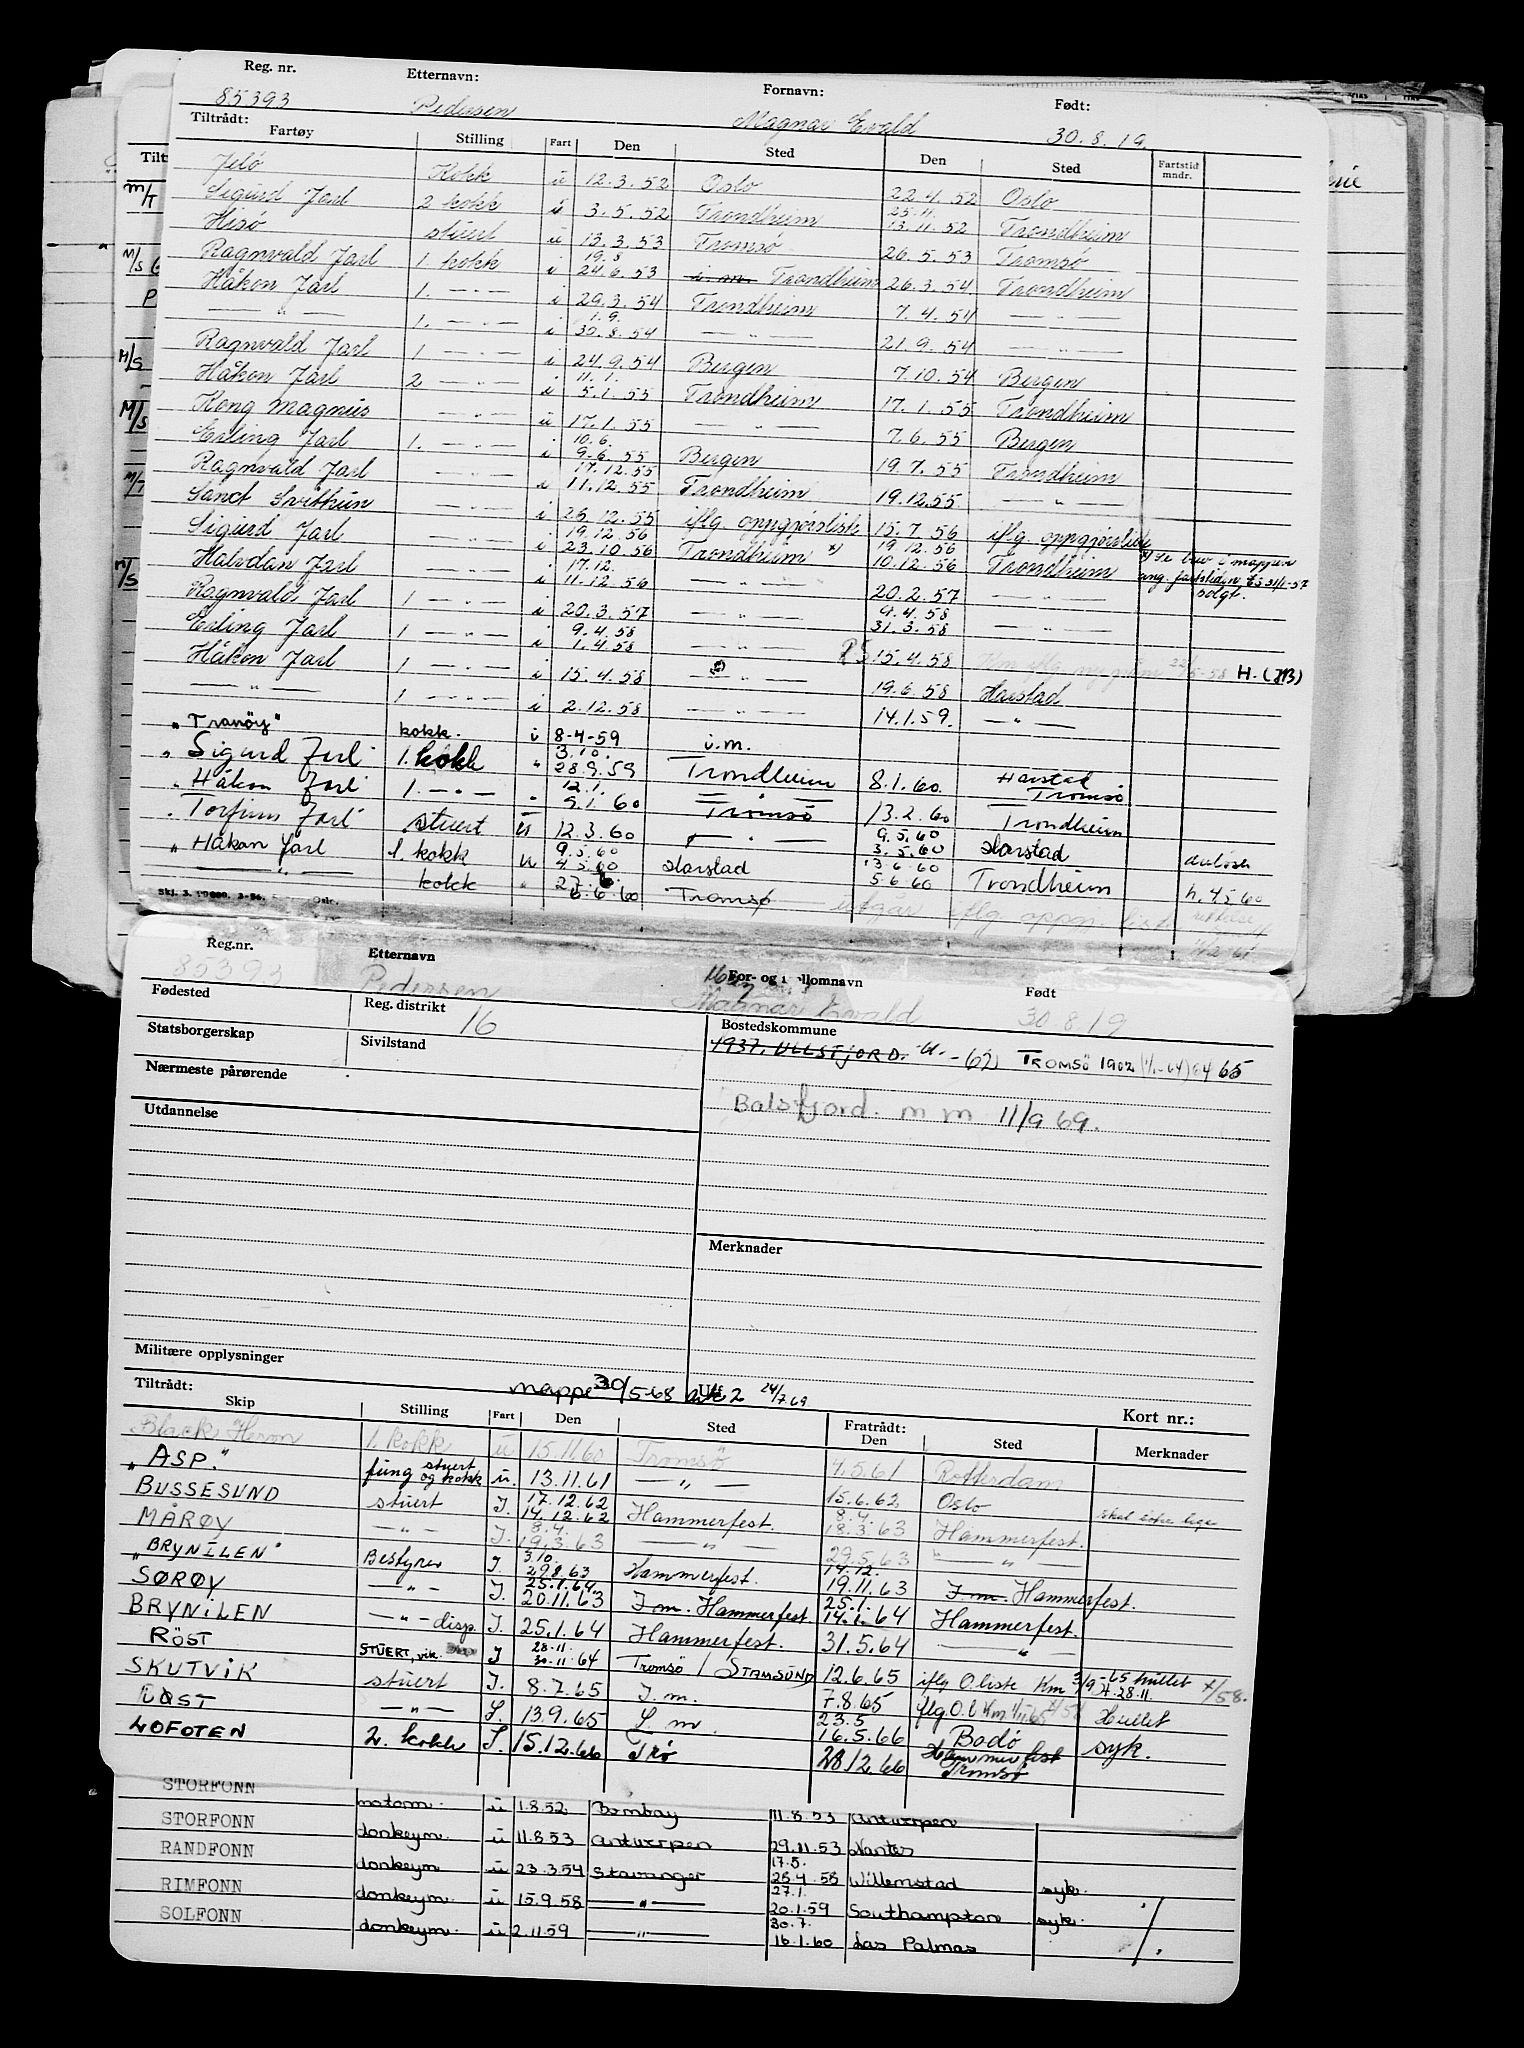 Reg. nr. Etternavn: Fornavn: Født:
85393 Pedersen Magnar Evald 30.8.19.
Tiltrådt:
Fartøy Stilling Fart Den Sted Den Sted Fartstid mndr.
Jelö Kokk u 12.3.52 Oslo 22.4.52 Oslo
Sigurd Jarl 2 kokk i 3.5.52 Trondheim 25.11. 13.11.52 Trondheim
Hisö stuert u 13.3.53 Tromsö 26.5.53 Tromsö
Ragnvald Jarl 1. kokk i 19.8 24.6.53 i.m. Trondheim 26.3.54 Trondheim
Håkon Jarl 1. — " — i 29.3.54 Trondheim 7.4.54 — " —
— " — 1. — " — i 1.9. 30.8.54 — " — 21.9.54 — " —
Ragnvald Jarl 1 — " — i 24.9.54 Bergen 7.10.54 Bergen
Håkon Jarl 2 — " — i 11.1. 5.1.55 Trondheim 17.1.55 Trondheim
Kong Magnus — " — u 17.1.55 — " — 7.6.55 Bergen
Erling Jarl 1. — " — i 10.6. 9.6.55 Bergen 19.7.55 Trondheim
Ragnvald Jarl — " — i 17.12.55 11.12.55 Trondheim 19.12.55 — " —
Sanct Svithun — " — i 26.12.55 iflg oppgjørslisk 15.7.56 iflg oppgjørsliste
Sigurd Jarl — " — i 19.12.56 23.10.56 Trondheim x) 19.12.56 10.12.56 Trondheim x) Se brev i mappen
Halvdan Jarl — " — i 17.12. 11.12.56 — " — 20.2.57 — " — ang. fartstiden solgt.
Ragnvald Jarl 1 — " — i 20.3.57 — " — 9.4.58 31.3.58 — " —
Erling Jarl 1 — " — i 9.4.58 1.4.58 — " — 15.4.58 H. (JB)
Håkon Jarl 1 — " — i 15.4.58 — " — 19.6.58 Harstad
— " — 1 — " — i 2.12.58 — " — 14.1.59. — " —
"Tranöy" kokk. i 8-4-59 i.m.
" Sigurd Jarl 1. kokk " 3.10. 28.9.59 Trondheim 8.1.60 Harstad Tromsö
" Håkon Jarl 1. — " — " 12.1. 9.1.60 Tromsö 13.2.60 Trondheim
" Torfinn Jarl stuert 12.3.60 — " — 9.5.60 3.5.60 Harstad
" Håkon Jarl 1. kokk 9.5.60 4.5.60 Harstad 13.6.60 5.6.60 Trondheim
— " — kokk " 27.6. 6.6.60 Tromsø utgår iflg oppgj.
Reg.nr. Etternavn For- og mellomnavn Født
85393 Pedersen Magnar Evald 30.8.19
Fødested Reg. distrikt 16
Statsborgerskap Sivilstand Bostedskommune
1937. ULLSTJORD. -62 TROMSÖ 1902 65
Nærmeste pårørende
Balsfjord. m m 11/9 69.
Utdannelse
Merknader
Militære opplysninger
Tiltrådt: mappe 30/5-68 ark 2 24/7 69 Kort nr.:
Skip Stilling Fart Den Sted Fratrådt: Den Sted Merknader
Black Heron 1. kokk u 15.11.60 Tromsö 7.5.61 Rotterdam
"ASP." fung stuert og kokk u. 13.11.61 — " — 15.6.62 Oslo
BUSSESUND stuert I. 17.12.62 14.12.62 Hammerfest. 8.4. 18.3.63 Hammerfest.
MÅRØY — " — I. 8.4. 19.3.63 — " — 29.5.63 — " —
"BRYNILEN" Bestyrer I. 3.10. 29.8.63 Hammerfest. 14.12. 19.11.63 I.m. Hammerfest.
SØRØY — " — I. 25.1.64. 20.11.63 I.m. Hammerfest. 25.1. 14.1.64 Hammerfest.
BRYNILEN — " — disp. I. 25.1.64 Hammerfest. 31.5.64 — " —
RÖST STUERT, vik. I 28-11. 30-11-64 Tromsø / STAMSUND 12.6.65 iflg O.liste Km hullet
SKUTVIK stuert I. 8.7.65 I.m. 7.8.65 iflg O.l Km. Hullet
RÖST — " — I. 13.9.65 I.m. 23.5 16.5.66 Bodö syk.
LOFOTEN 2. kokk I. 15.12.66 Trø 28.12.66 Hammerfest Tromsö
STORFONN motorm. u 1.8.52 Bombay 11.8.53 Antwerpen
STORFONN donkeym. u 11.8.53 Antwerpen 29.11.53 Nantes
RANDFONN donkeym u 23.3.54 Stavanger 17.5. 28.4.58 Willemstad syk.
RIMFONN donkeym. u 15.9.58 — " — 27.1. 20.1.59 Southampton syk.
SOLFONN donkeym. u 2.11.59 — " — 30.7. 16.1.60 Las Palmas